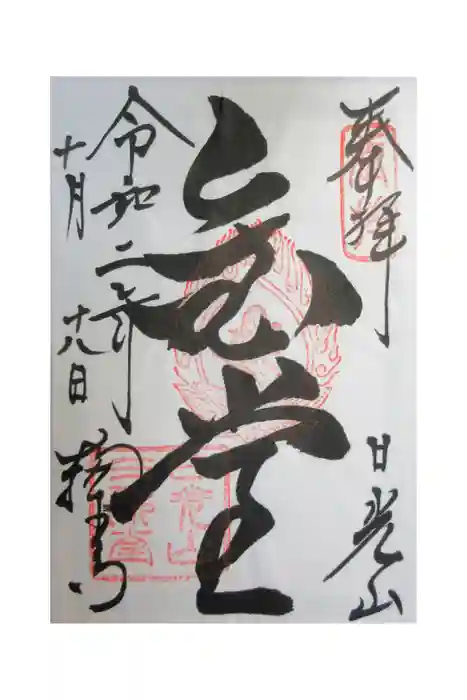 奉拝
日光山
金堂
令和二年
十月十八日
輪王寺